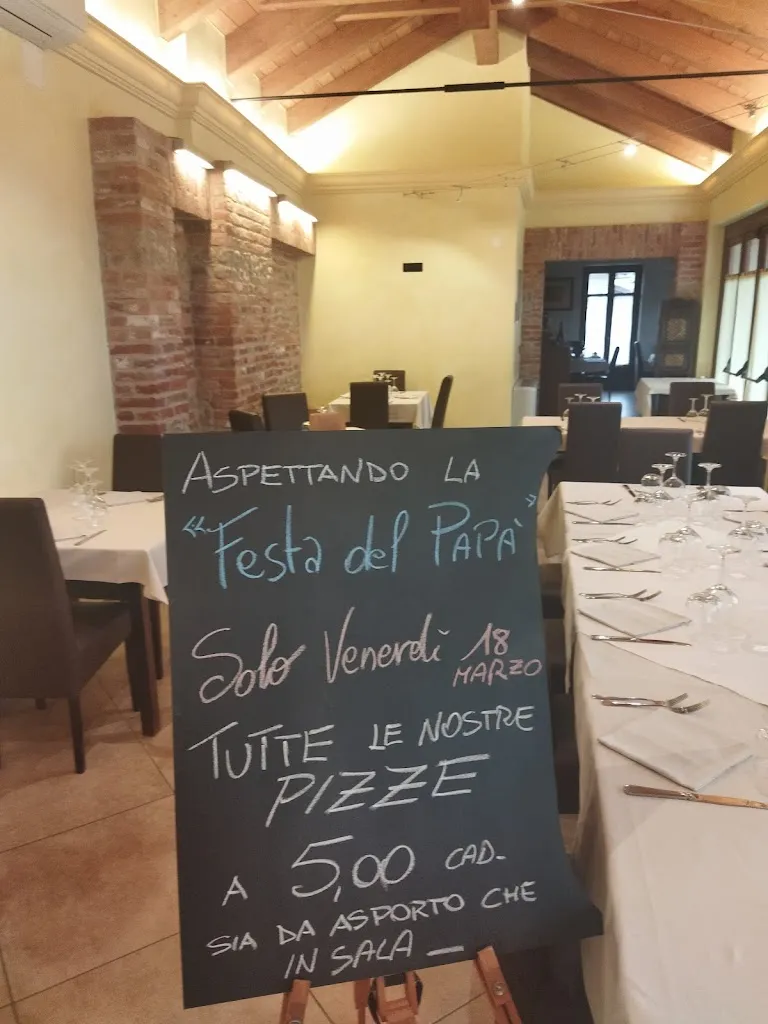 ASPETTANDO LA
"Festa del PAPA'"
Solo Venerdì 18
MARZO
TUTTE LE NOSTRE
PIZZE
A 5,00 CAD-
SIA DA ASPORTO CHE
IN SALA —